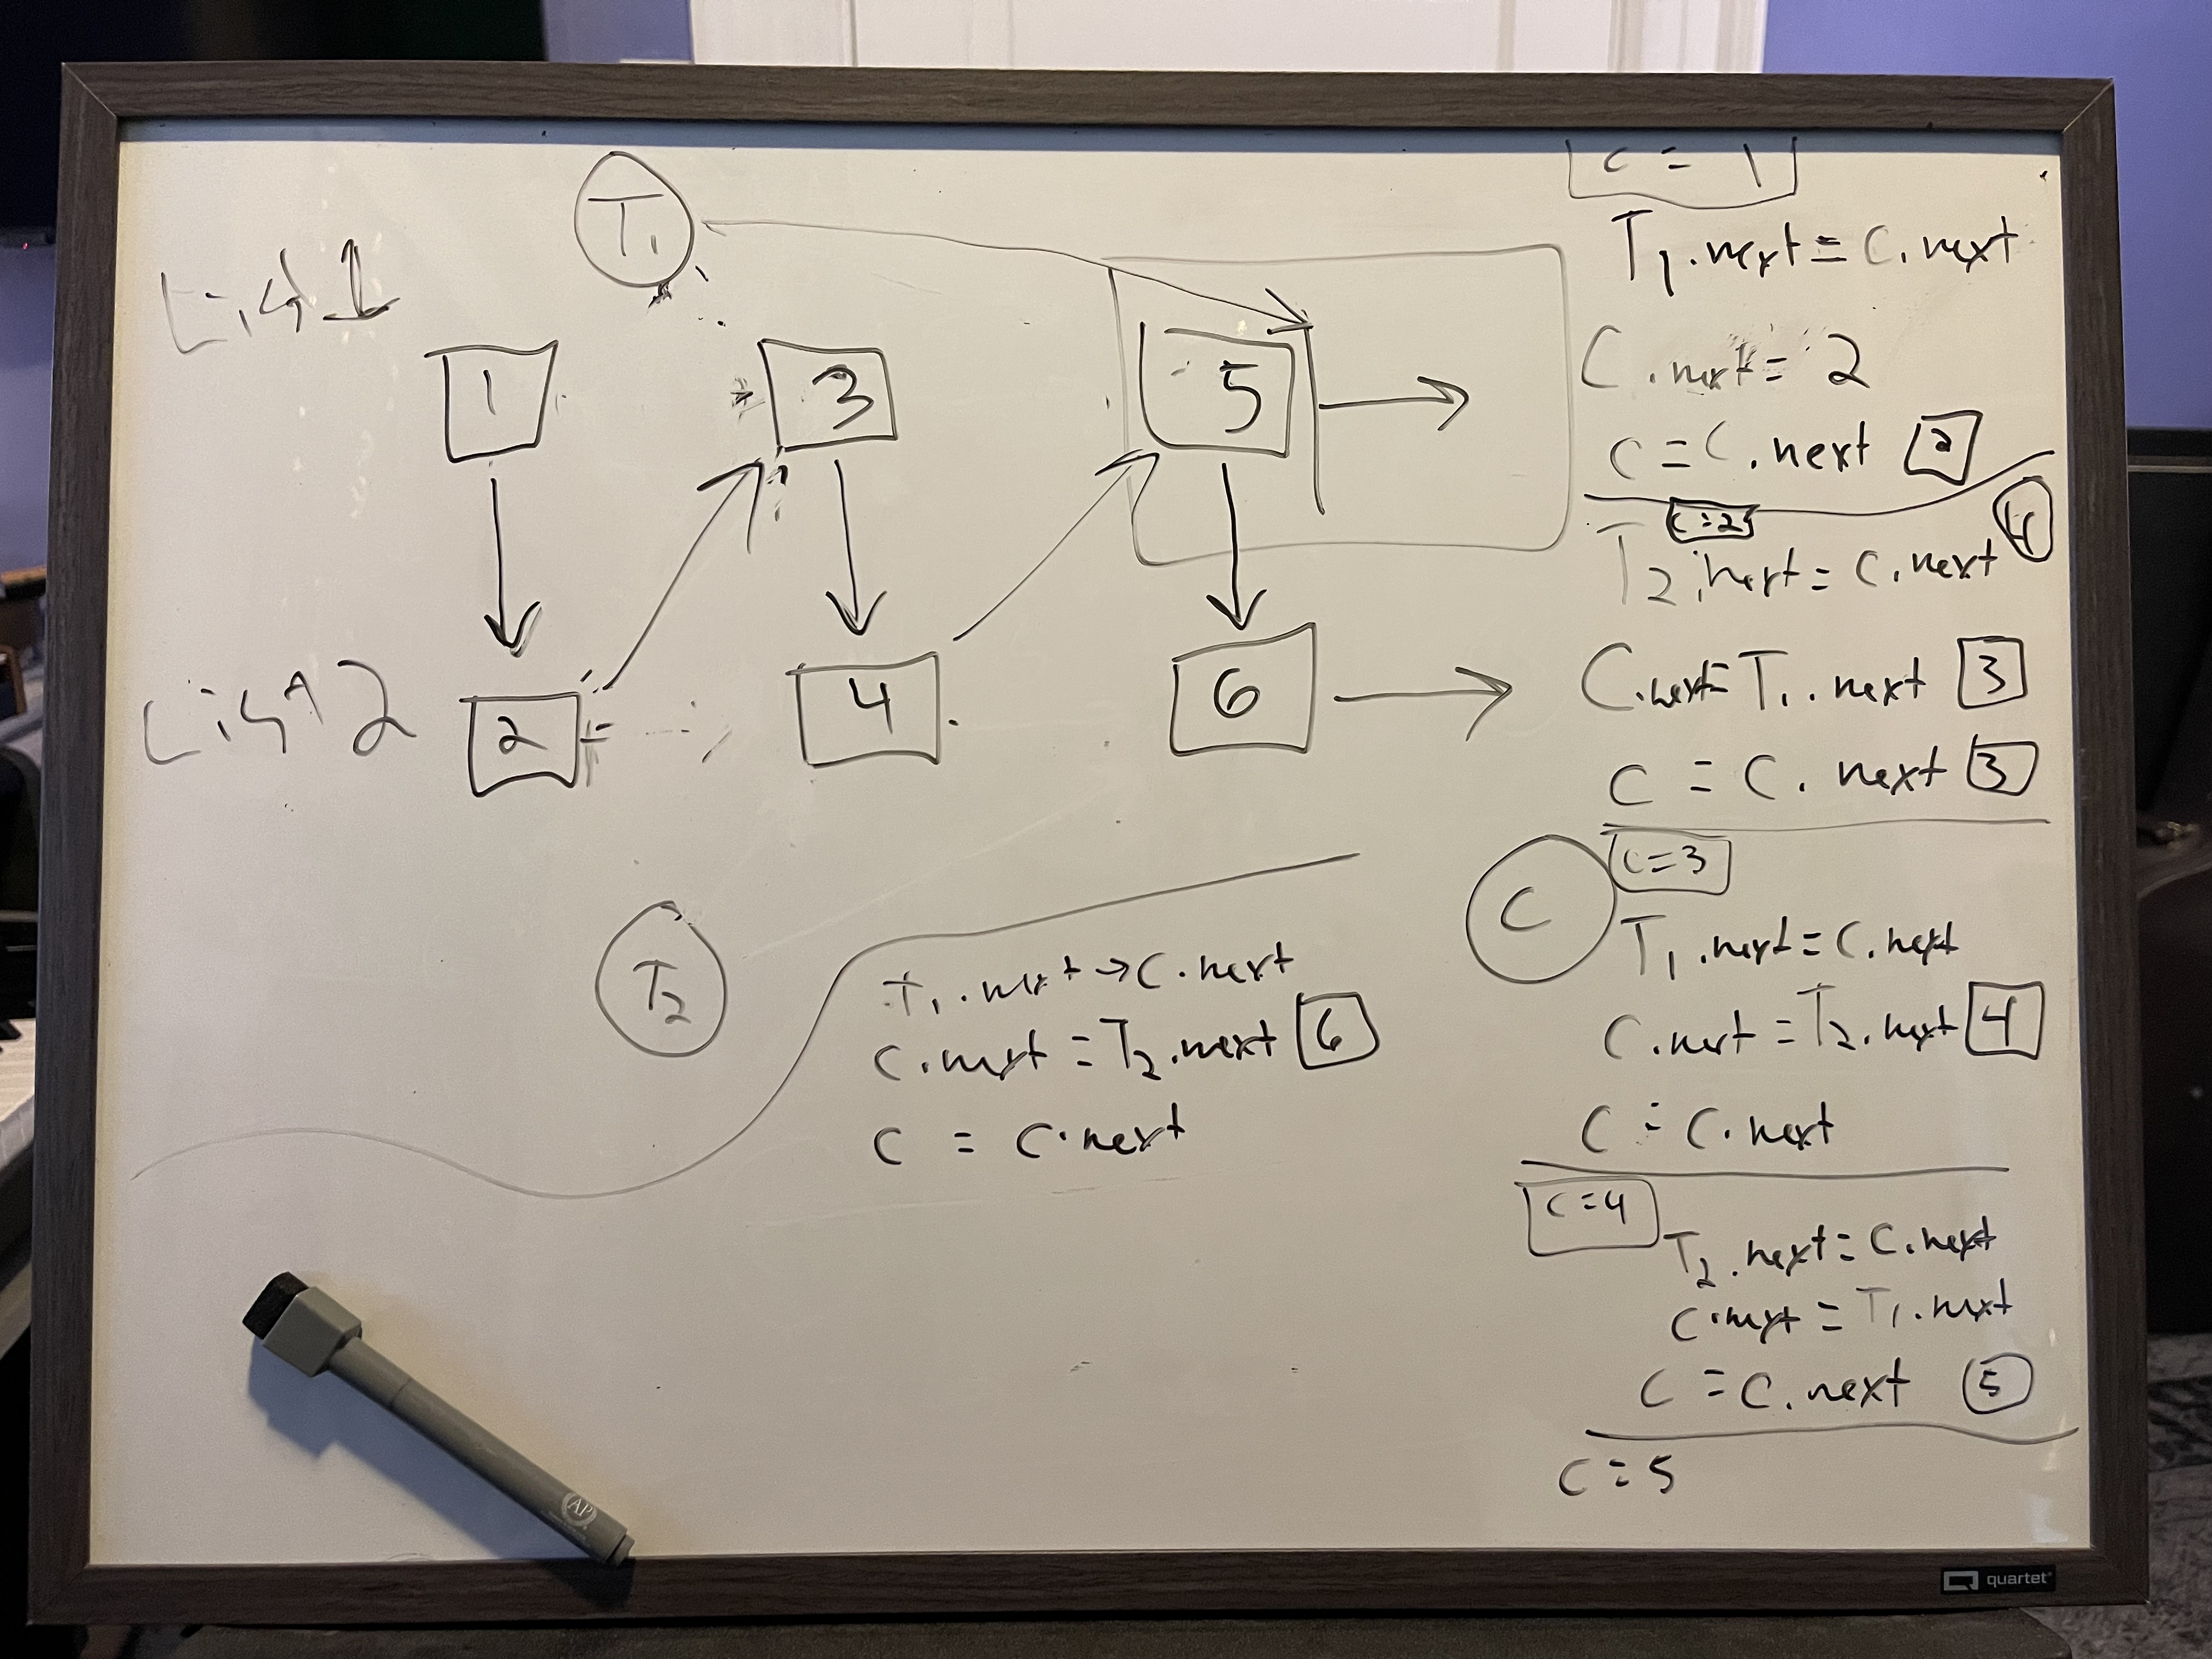 List 1
T1
1
3
5
List 2
2
4
6
T2
T1.next → C.next
C.next = T2.next 6
C = C.next
C = 1
T1.next = C.next
C.next = 2
C = C.next 2
C=2
T2.next = C.next 4
C.next = T1.next 3
C = C.next 3
C
C=3
T1.next = C.next
C.next = T2.next 4
C = C.next
C=4
T2.next = C.next
C.next = T1.next
C = C.next 5
C = 5
AP
quartet